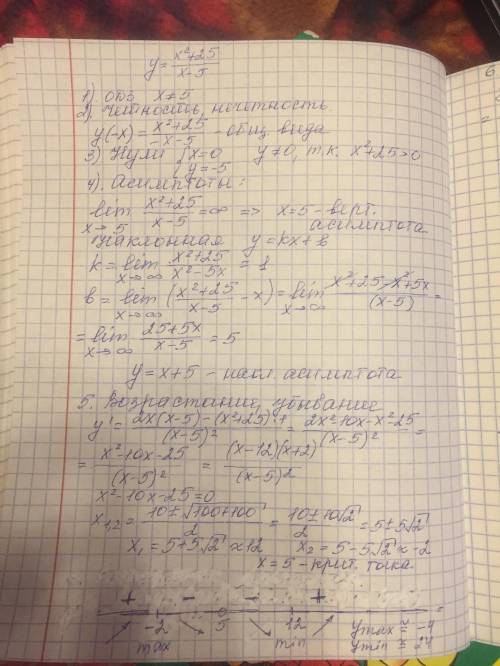 y = (x²+25)/(x-5)
1) ОДЗ x≠5
2) Четность, нечетность
y(-x) = (x²+25)/(-x-5) - общ. вида
3) Нули { x=0 y=-5 y≠0, т.к. x²+25>0
4). Асимптоты:
lim x→5 (x²+25)/(x-5) = ∞ => x=5 - верт. асимптота
Наклонная y=kx+b
k = lim x→∞ (x²+25)/(x²-5x) = 1
b = lim x→∞ ((x²+25)/(x-5) - x) = lim x→∞ (x²+25-x²+5x)/(x-5) =
= lim x→∞ (25+5x)/(x-5) = 5
y=x+5 - накл. асимптота
5. Возрастание, убывание
y' = (2x(x-5)-(x²+25)·1)/(x-5)² = (2x²-10x-x²-25)/(x-5)² =
= (x²-10x-25)/(x-5)² = (x-12)(x+2)/(x-5)²
x²-10x-25=0
x₁,₂ = (10±√(100+100))/2 = (10±10√2)/2 = 5±5√2
x₁=5+5√2≈12 x₂=5-5√2≈-2
x=5 - крит. точка
+ - - +
-2 5 12 ymax ≅ -4
max min ymin ≅ 24